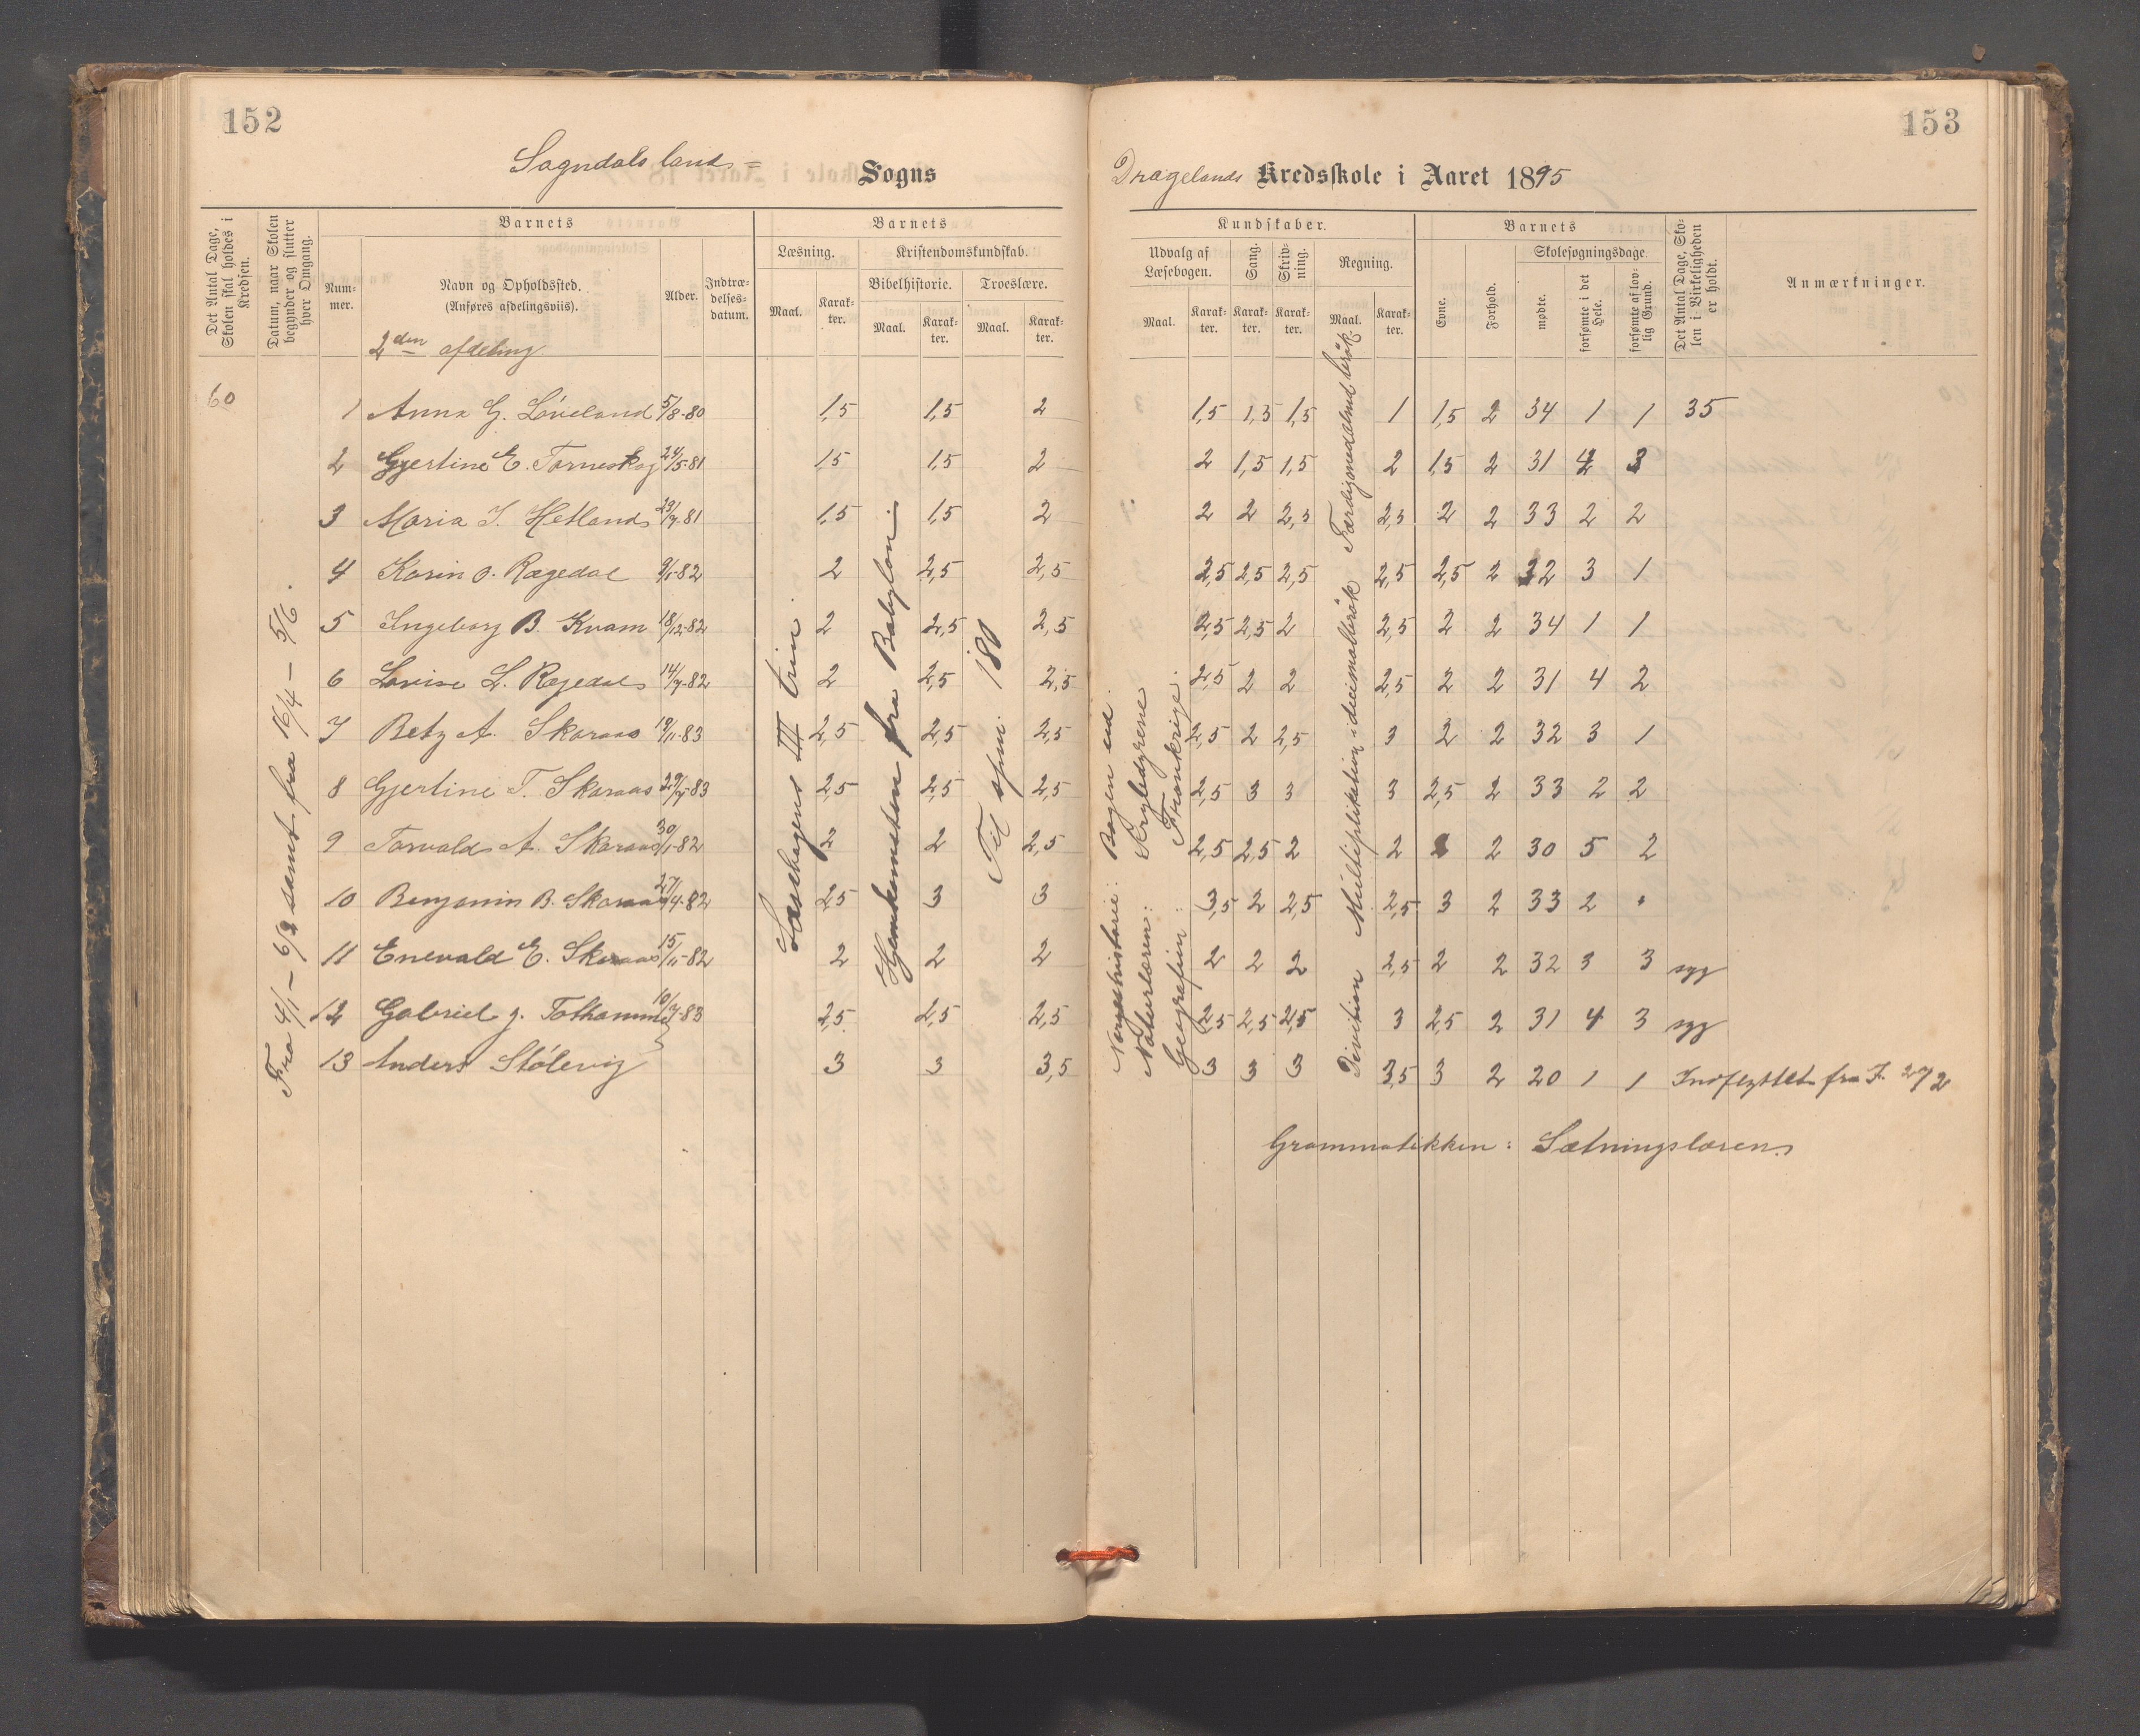 152
153
Sogndals land= Sogns
Dragelands Kredsskole i Aaret 1895
Det Antal Dage, Skolen skal holdes i Kredsen.
Datum, naar Skolen begynder og slutter hver Omgang.
Barnets
Nummer.
Navn og Opholdssted. (Anføres afdelingsviis).
Alder.
Indtrædelsesdatum.
Barnets
Læsning.
Maal.
Karakter.
Kristendomskundskab.
Bibelhistorie.
Maal.
Karakter.
Troeslære.
Maal.
Karakter.
Kundskaber.
Udvalg af Læsebogen.
Maal.
Karakter.
Sang.
Karakter.
Skrivning.
Karakter.
Regning.
Maal.
Karakter.
Barnets
Evne.
Forhold.
Skolesøgningsdage.
mødte.
forsømte i det Hele.
forsømte af lovlig Grund.
Det Antal Dage, Skolen i Virkeligheden er holdt.
Anmærkninger.
2den afdeling
60 1 Anna G. Løveland 5/8-80 1,5 1,5 2 1,5 1,5 1,5 1 1,5 2 34 1 1 35
2 Gjertine E. Torneskog 24/5-81 1,5 1,5 2 2 1,5 1,5 2 1,5 2 31 4 3
3 Maria I. Hetland 29/7-81 1,5 1,5 2 2 2 2,5 2,5 2 2 33 2 2
4 Karin O. Rægedal 9/1-82 2 2,5 2,5 2,5 2,5 2,5 2,5 2,5 2 32 3 1
5 Ingeborg B. Kvam 18/12-82 2 2,5 2,5 2,5 2,5 2 2,5 2 2 34 1 1
6 Lovise L. Rægedal 14/7-82 2 2,5 2,5 2,5 2 2 2,5 2 2 31 4 2
7 Betzy A. Skaraas 19/11-83 2,5 2,5 2,5 2,5 2 2,5 3 2 2 32 3 1
8 Gjertine T. Skaraas 29/7-83 2,5 2,5 2,5 2,5 3 3 3 2,5 2 33 2 2
9 Torvald A. Skaraas 30/1-82 2 2 2,5 2,5 2,5 2 2 2 30 5 2
10 Benjamin B. Skaraas 27/4-82 2,5 3 3 3,5 2 2,5 2,5 3 2 33 2
11 Enevald E. Skaraas 15/11-82 2 2 2 2 2 2 2,5 2 2 32 3 3 syg
12 Gabriel J. 10/7-83 2,5 2,5 2,5 2,5 2,5 2,5 3 2,5 2 31 4 3 syg
13 Anders Stølevig 3 3 3,5 3 3 3 3,5 3 2 20 1 1 Indflyttet fra F. 27/2
Fra 4/1 - 6/2 samt fra 16/4 - 5/6.
Læsebogens III trin.
Hjemkomsten fra Babylon.
Til spm. 180
Norgeshistorie: Bogen ud.
Naturlæren: Krybdyrene
Geografien: Frankrige.
Division Multiplikation i decimalbrøk Færdig med alm. brøk
Grammatikken: Sætningslæren